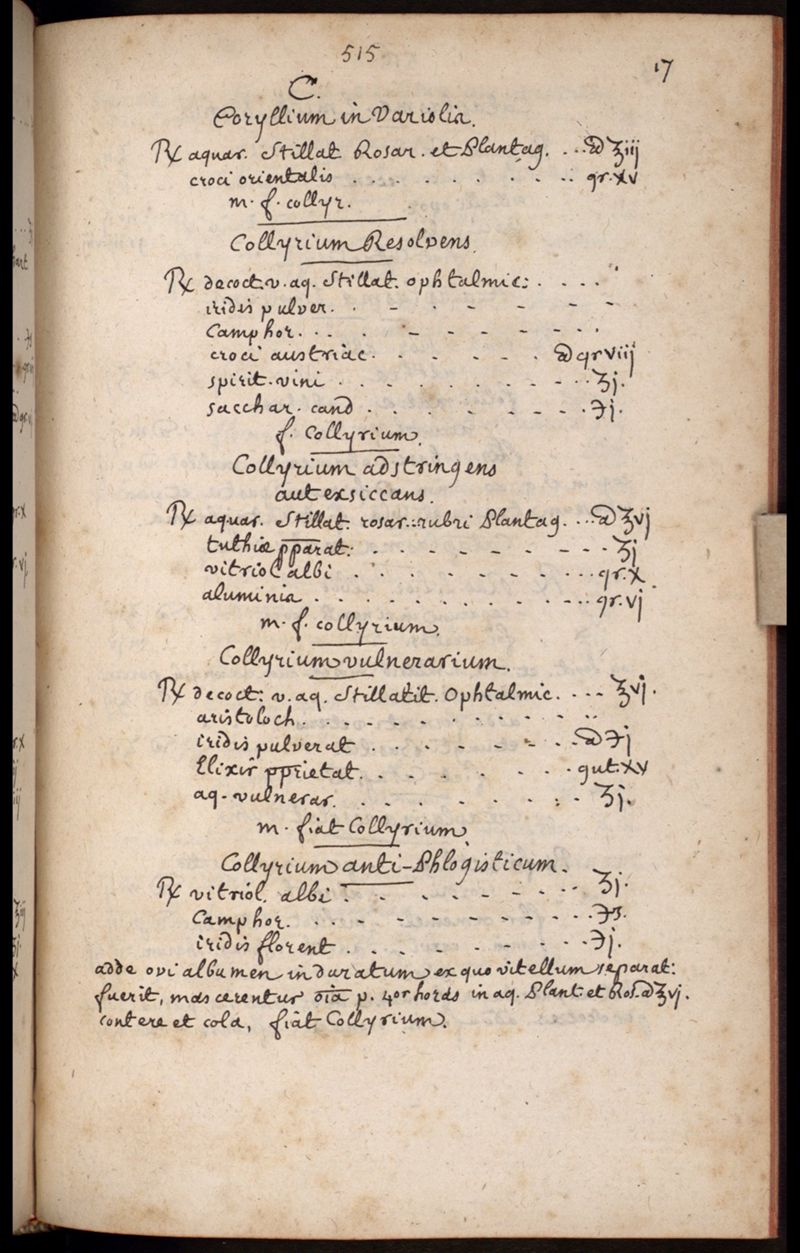 515
17
C.
Coryllium in Variolia.
℞ aquar. Stillat Rosar. et Plantag. . . . ā ℥iij
croci orientalis . . . . . . . . . . gr. xv
m. f. collyr.
Collyrium Resolvens.
℞ decoct. v. aq. Stillat. ophtalmic: . . . .
iridis pulver. . - . - - -
Camphor. . . . - - - - - . .
croci austriac. . - . - . ā gr viij
spirit. vini . . . . . . . - - . . ʒj.
sacchar. cand . . . . - - - - . ℈j.
f. Collyrium.
Collyrium adstringens
aut exsiccans.
℞ aquar. Stillat. rosar. rubri Plantag. . . . ā ℥vj
tuthiæ pparat: . . - . . - - - - . . ʒj
vitriol albi . . . - . - - . . . gr. x
aluminia . . . . . . . . . . - . . gr. vj
m. f. collyrium.
Collyrium vulnerarium.
℞ decoct: v. aq. Stillatit. Ophtalmic. . . . ℥vj.
aristoloch. . . . . . . . . . - . .
iridis pulverat . . . . - - . - . . ā ℈j
Elixir pprietat. . . . . . . . gut. xv
aq. vulnerar. . . . . . . - : . ʒj.
m. fiat Collyrium.
Collyrium anti-Phlogisticum.
℞ vitriol. albi . . . . - - - . . ʒj.
Camphor. . . - - - - - - - . . ℈s.
iridis florent . . . . - . - - . . ℈j.
adde ovi albumen induratum ex quo vitellum separat:
fuerit, mas cerentur oīa p. 4or horas in aq. Plant. et Ros. ā ℥vj.
contere et cola, fiat Collyrium.